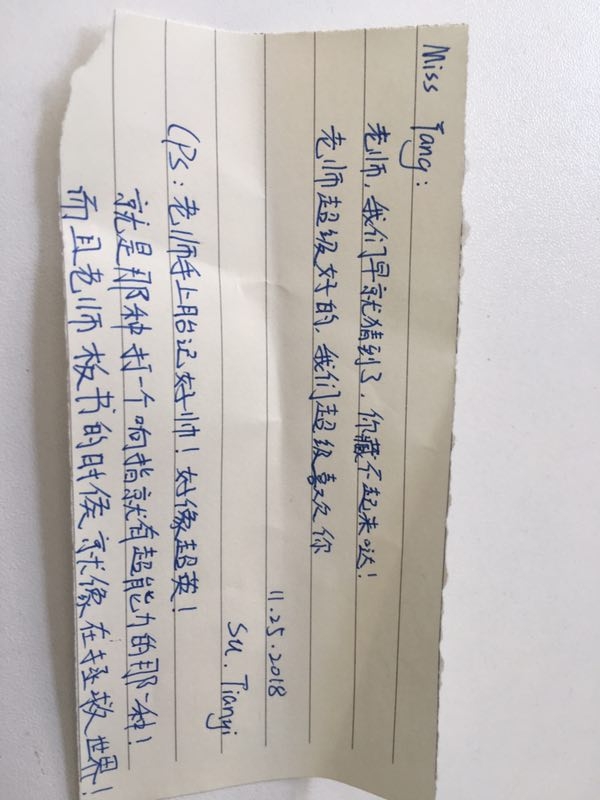 Miss Tang:
老师,我们早就猜到了,你藏不起来哒!
老师超级好的,我们超级喜欢你
11.25.2018
Su. Tianyi
(Ps:老师手上胎记好帅!好像超英!
就是那种打一个响指就有超能力的那一种!
而且老师板书的时候就像在拯救世界!